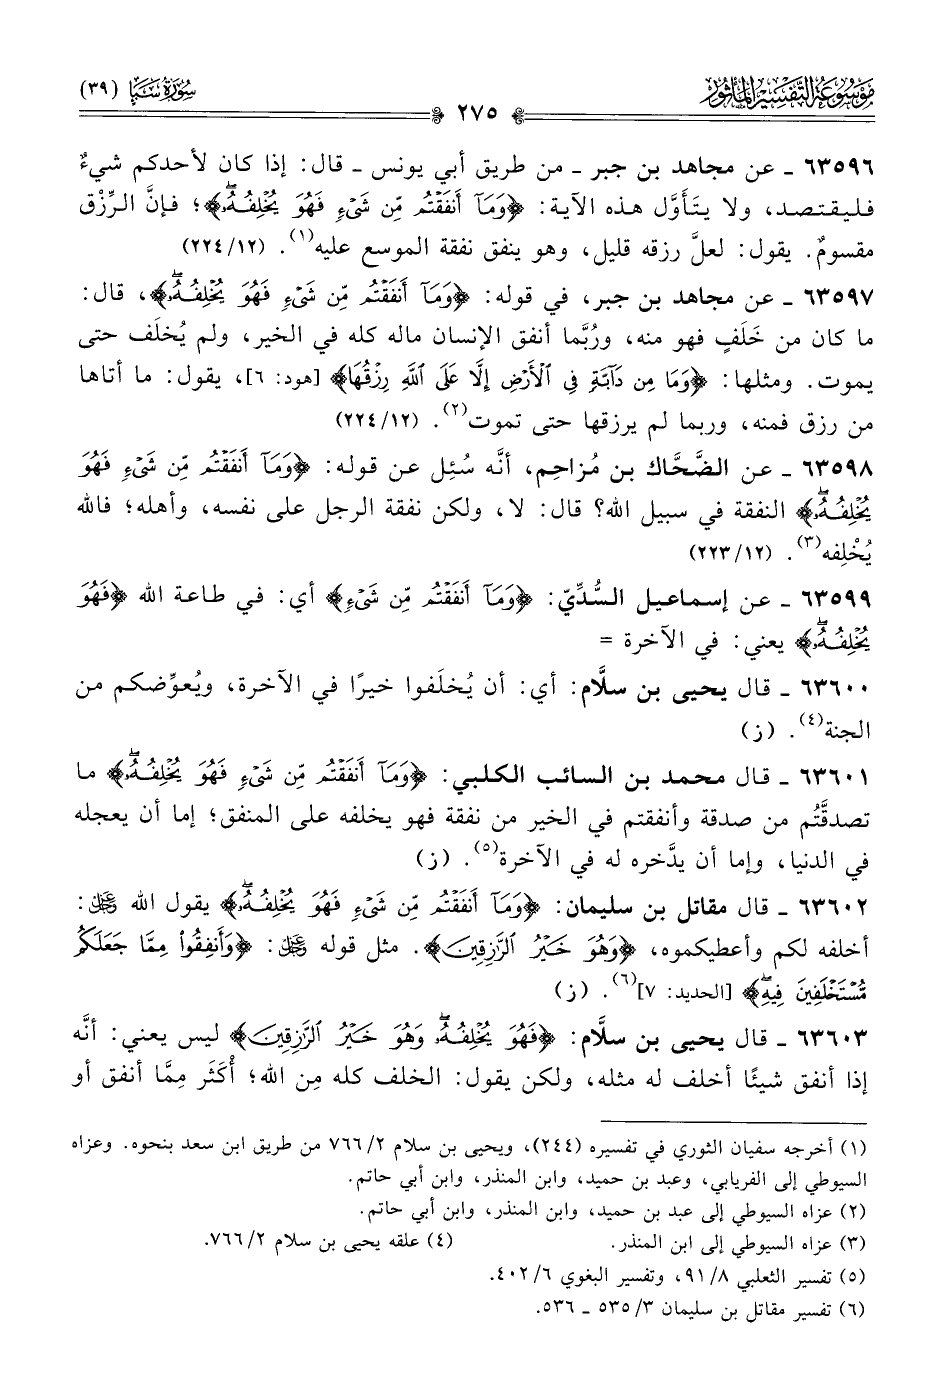 مَوْسُوعَةُ التَّفْسِيرِ المَأْثُورِ
سُورَةُ سَبَإٍ (٣٩)
٢٧٥
٦٣٥٩٦ ـ عن مجاهد بن جبر ـ من طريق أبي يونس ـ قال: إذا كان لأحدكم شيءٌ
فليقتصد، ولا يتأوَّل هذه الآية: ﴿وَمَآ أَنفَقْتُم مِّن شَىْءٍ فَهُوَ يُخْلِفُهُۥۖ﴾؛ فإنَّ الرِّزْق
مقسومٌ. يقول: لعلَّ رزقه قليل، وهو ينفق نفقة الموسع عليه(١). (١٢/٢٢٤)
٦٣٥٩٧ ـ عن مجاهد بن جبر، في قوله: ﴿وَمَآ أَنفَقْتُم مِّن شَىْءٍ فَهُوَ يُخْلِفُهُۥۖ﴾، قال:
ما كان من خَلَفٍ فهو منه، ورُبَّما أنفق الإنسان ماله كله في الخير، ولم يُخلَف حتى
يموت. ومثلها: ﴿وَمَا مِن دَآبَّةٍ فِى ٱلْأَرْضِ إِلَّا عَلَى ٱللَّهِ رِزْقُهَا﴾ [هود: ٦]، يقول: ما أتاها
من رزق فمنه، وربما لم يرزقها حتى تموت(٢). (١٢/٢٢٤)
٦٣٥٩٨ ـ عن الضَّحَّاك بن مُزاحِم، أنَّه سُئِل عن قوله: ﴿وَمَآ أَنفَقْتُم مِّن شَىْءٍ فَهُوَ
يُخْلِفُهُۥۖ﴾ النفقة في سبيل الله؟ قال: لا، ولكن نفقة الرجل على نفسه، وأهله؛ فالله
يُخْلِفه(٣). (١٢/٢٢٣)
٦٣٥٩٩ ـ عن إسماعيل السُّدِّيّ: ﴿وَمَآ أَنفَقْتُم مِّن شَىْءٍ﴾ أي: في طاعة الله ﴿فَهُوَ
يُخْلِفُهُۥۖ﴾ يعني: في الآخرة =
٦٣٦٠٠ ـ قال يحيى بن سلَّام: أي: أن يُخلَفوا خيرًا في الآخرة، ويُعوِّضكم من
الجنة(٤). (ز)
٦٣٦٠١ ـ قال محمد بن السائب الكلبي: ﴿وَمَآ أَنفَقْتُم مِّن شَىْءٍ فَهُوَ يُخْلِفُهُۥۖ﴾ ما
تصدقَّتُم من صدقة وأنفقتم في الخير من نفقة فهو يخلفه على المنفق؛ إما أن يعجله
في الدنيا، وإما أن يدَّخره له في الآخرة(٥). (ز)
٦٣٦٠٢ ـ قال مقاتل بن سليمان: ﴿وَمَآ أَنفَقْتُم مِّن شَىْءٍ فَهُوَ يُخْلِفُهُۥۖ﴾ يقول الله ﷿:
أخلفه لكم وأعطيكموه، ﴿وَهُوَ خَيْرُ ٱلرَّٰزِقِينَ﴾. مثل قوله ﷿: ﴿وَأَنفِقُوا۟ مِمَّا جَعَلَكُم
مُّسْتَخْلَفِينَ فِيهِۖ﴾ [الحديد: ٧](٦). (ز)
٦٣٦٠٣ ـ قال يحيى بن سلَّام: ﴿فَهُوَ يُخْلِفُهُۥۖ وَهُوَ خَيْرُ ٱلرَّٰزِقِينَ﴾ ليس يعني: أنَّه
إذا أنفق شيئًا أخلف له مثله، ولكن يقول: الخلف كله مِن الله؛ أُكَثر مِمَّا أنفق أو
(١) أخرجه سفيان الثوري في تفسيره (٢٤٤)، ويحيى بن سلام ٢/ ٧٦٦ من طريق ابن سعد بنحوه. وعزاه
السيوطي إلى الفريابي، وعبد بن حميد، وابن المنذر، وابن أبي حاتم.
(٢) عزاه السيوطي إلى عبد بن حميد، وابن المنذر، وابن أبي حاتم.
(٣) عزاه السيوطي إلى ابن المنذر. (٤) علقه يحيى بن سلام ٢/ ٧٦٦.
(٥) تفسير الثعلبي ٨/ ٩١، وتفسير البغوي ٦/ ٤٠٢.
(٦) تفسير مقاتل بن سليمان ٣/ ٥٣٥ ـ ٥٣٦.